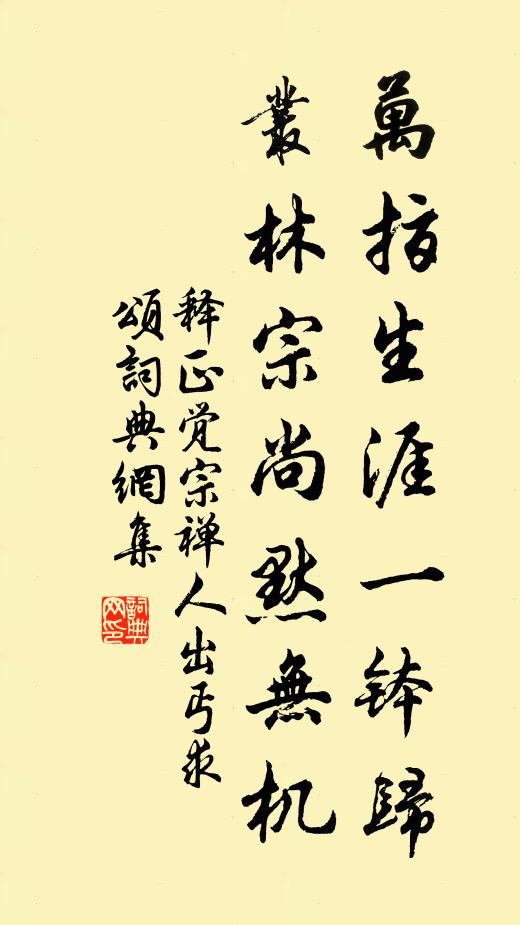 萬指生涯一钵歸
叢林宗尚默無机
释正觉宗禅人出丐求
頌詞典網集
詞典网印